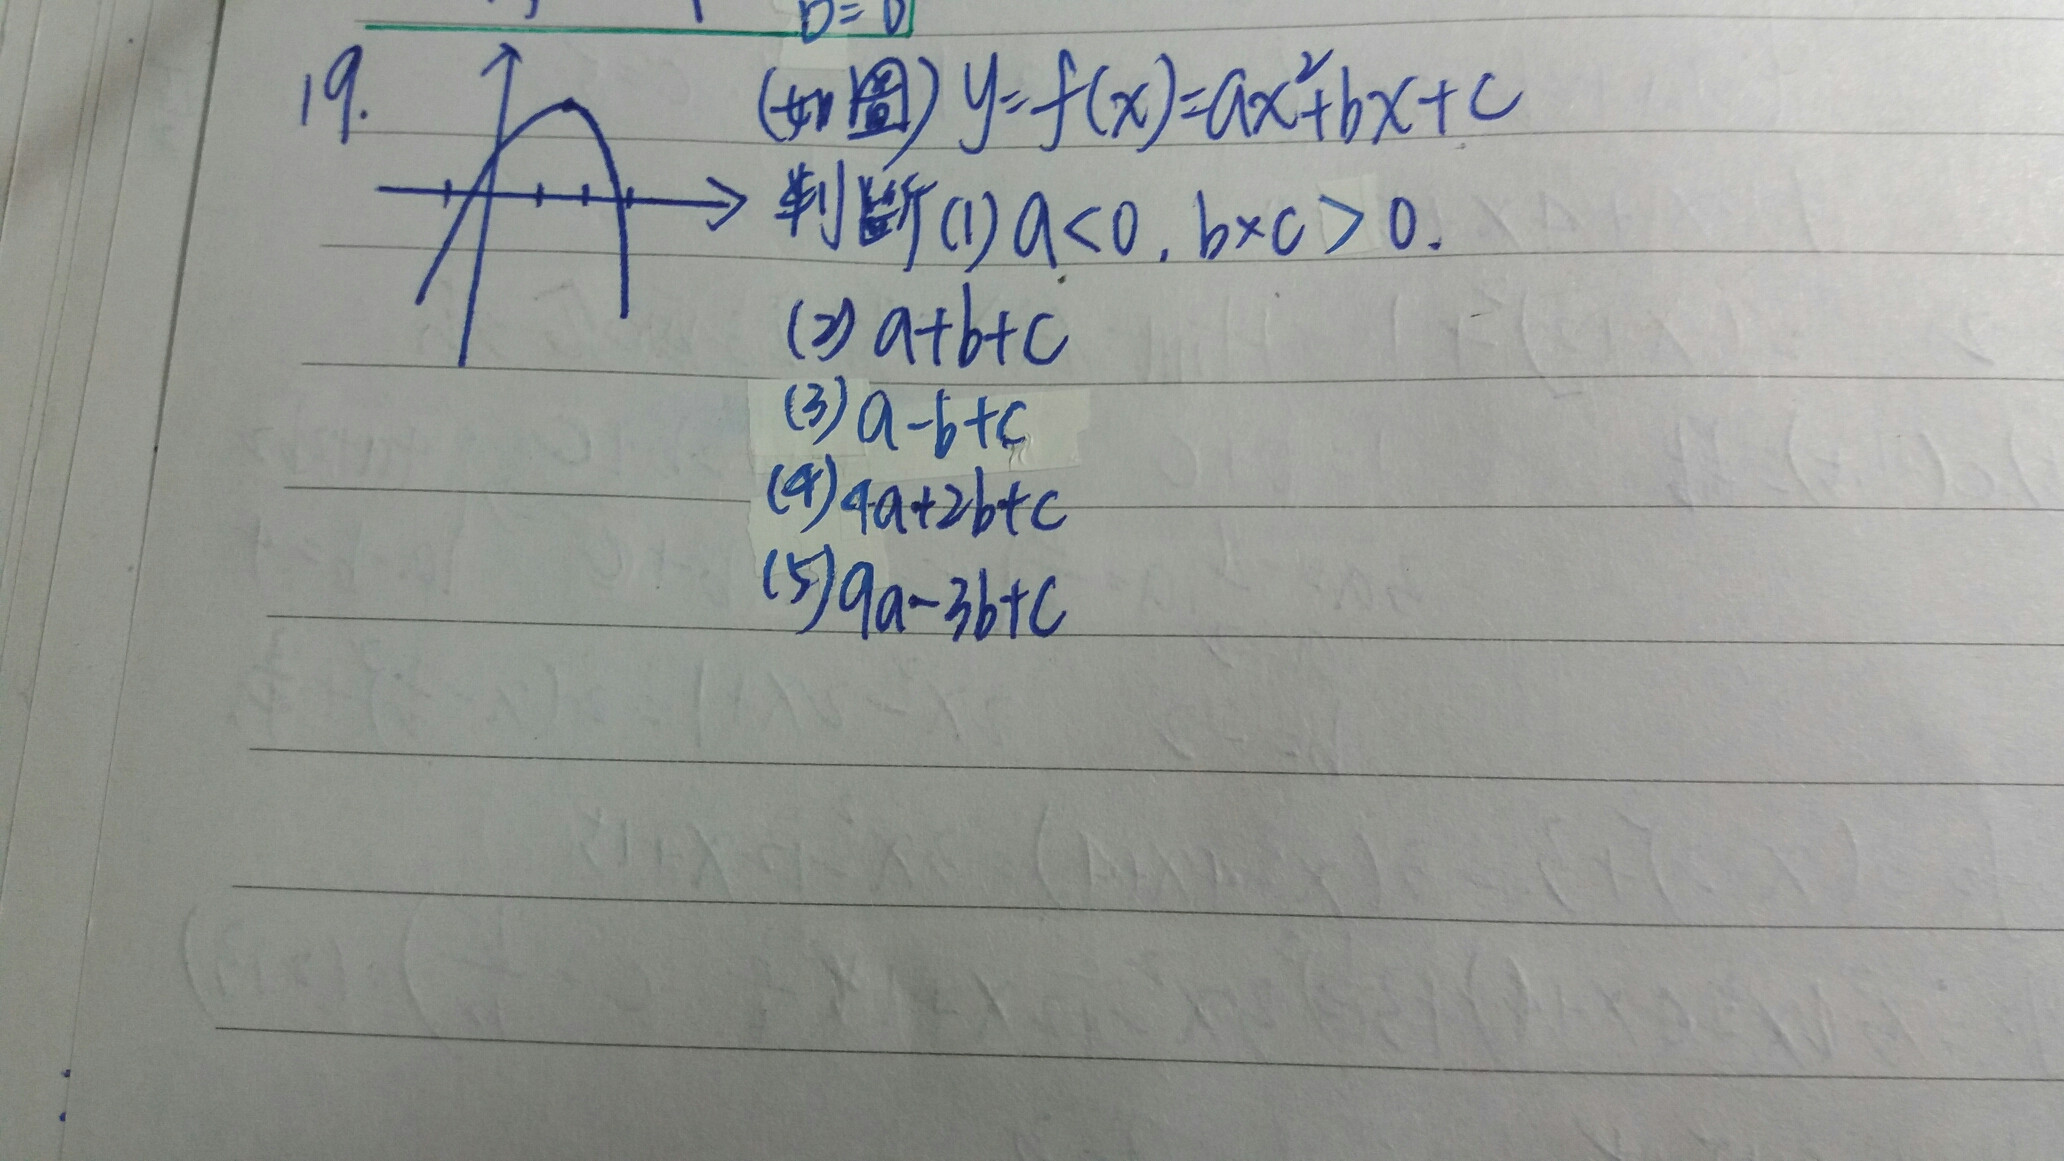 b=0
19.
(如圖) y=f(x)=ax²+bx+c
判斷(1) a<0. b×c>0.
(2) a+b+c
(3) a-b+c
(4) 4a+2b+c
(5) 9a-3b+c